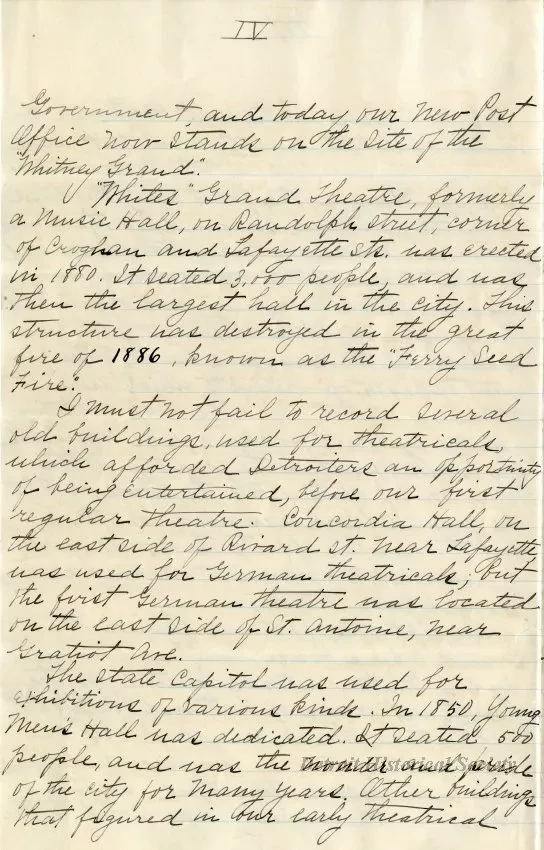 IV
Government, and today our New Post
Office now stands on the site of the
"Whitney Grand".
"Whites" Grand Theatre, formerly
a Music Hall, on Randolph street, corner
of Croghan and Lafayette sts. was erected
in 1880. It seated 3,000 people, and was
then the largest hall in the city. This
structure was destroyed in the great
fire of 1886, known as the "Ferry Seed
Fire".
I must not fail to record several
old buildings, used for theatricals,
which afforded Detroiters an opportunity
of being entertained, before our first
regular theatre. Concordia Hall, on
the east side of Rivard st. near Lafayette,
was used for German theatricals; but
the first German theatre was located
on the east side of St. Antoine, near
Gratiot Ave.
The state capitol was used for
exhibitions of various kinds. In 1850, Young
Men's Hall was dedicated. It seated 500
people, and was the wonder and pride
of the city for many years. Other buildings
that figured in our early theatrical
Detroit Historical Society